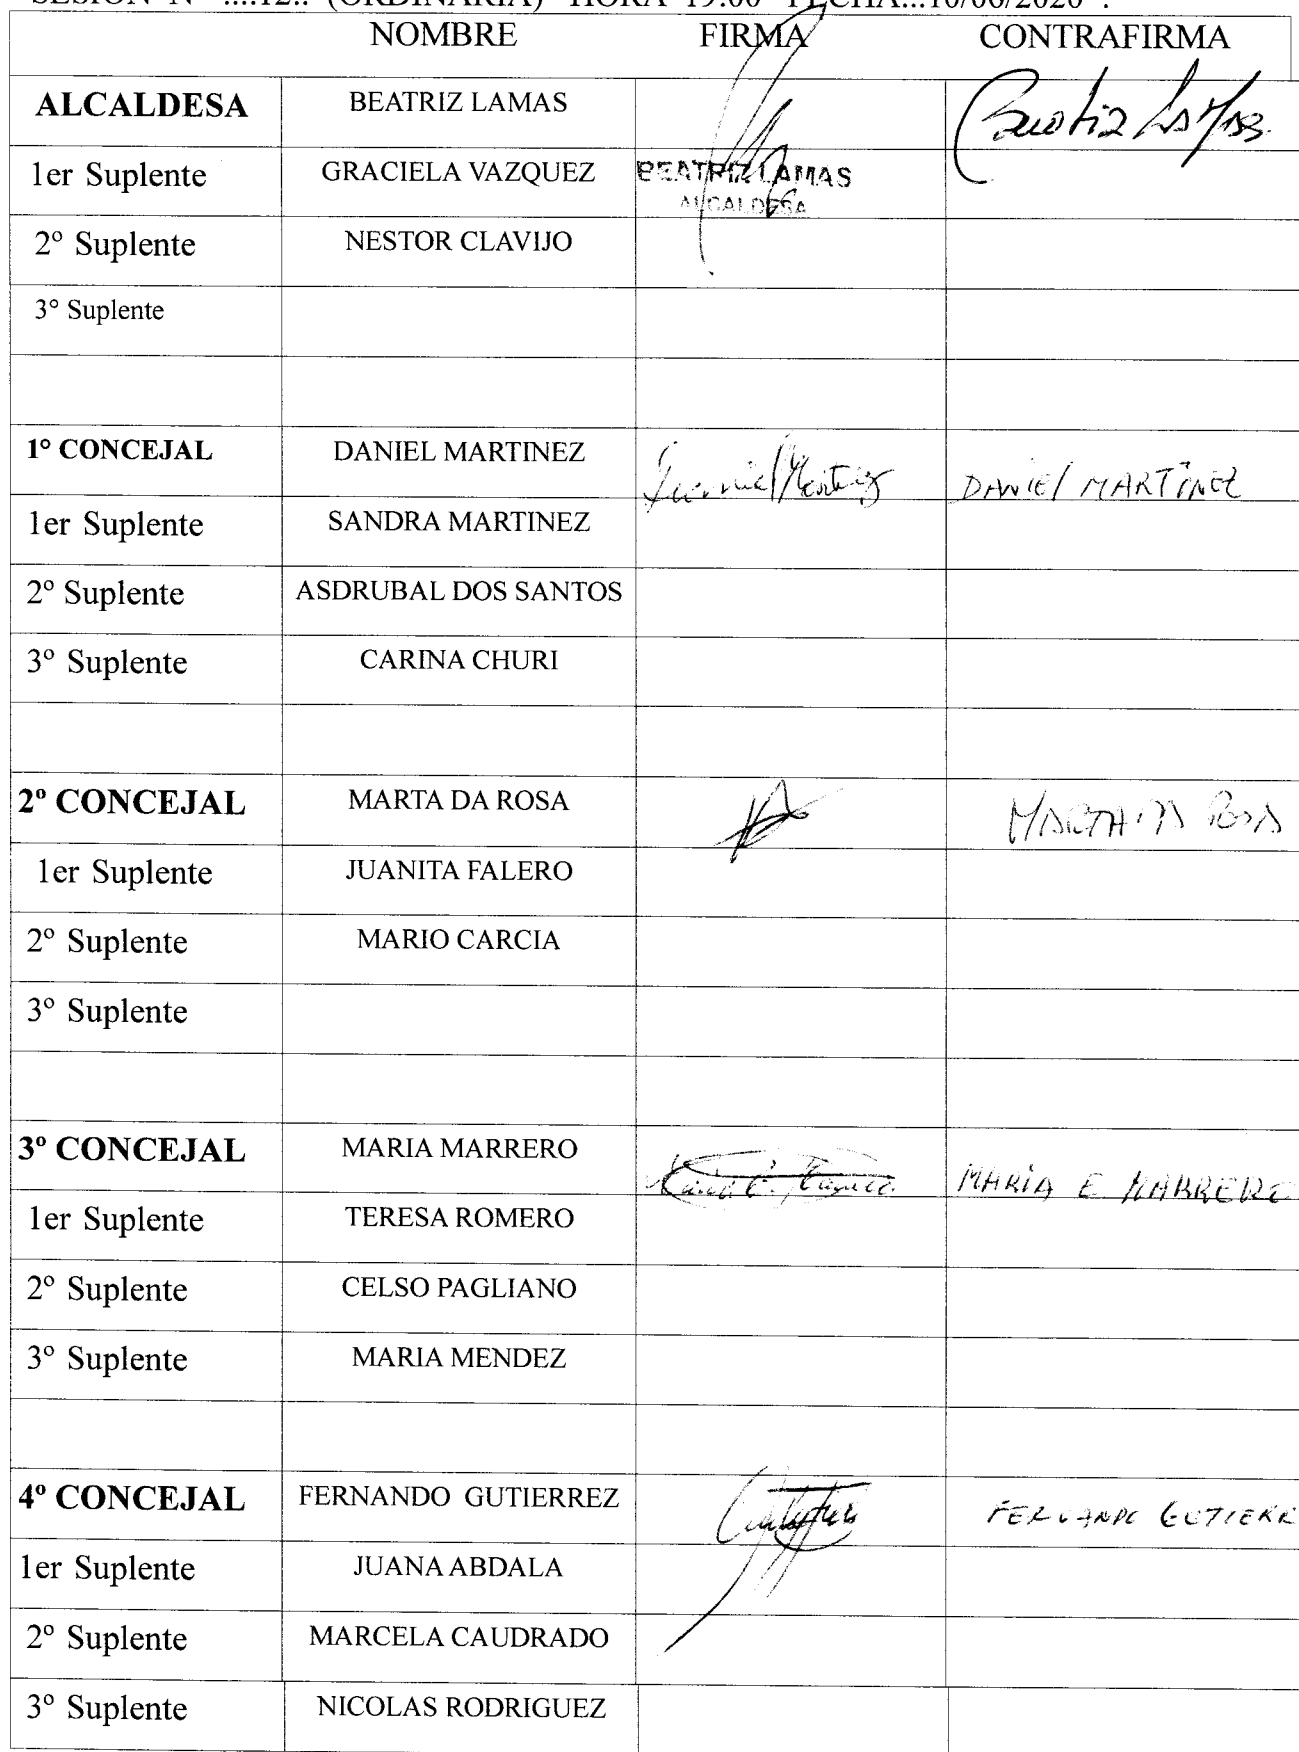 SESION Nº ....12.. (ORDINARIA) HORA 19.00 FECHA...10/06/2020 .
NOMBRE FIRMA CONTRAFIRMA
ALCALDESA BEATRIZ LAMAS Beatriz Lamas
1er Suplente GRACIELA VAZQUEZ BEATRIZ LAMAS
ALCALDESA
2º Suplente NESTOR CLAVIJO
3° Suplente
1º CONCEJAL DANIEL MARTINEZ Daniel Martinez DANIEl MARTÍNEZ
1er Suplente SANDRA MARTINEZ
2º Suplente ASDRUBAL DOS SANTOS
3º Suplente CARINA CHURI
2º CONCEJAL MARTA DA ROSA MARTA DA ROSA
1er Suplente JUANITA FALERO
2º Suplente MARIO CARCIA
3º Suplente
3º CONCEJAL MARIA MARRERO MARÍA E MARRERO
1er Suplente TERESA ROMERO
2º Suplente CELSO PAGLIANO
3º Suplente MARIA MENDEZ
4º CONCEJAL FERNANDO GUTIERREZ FERNANDO GUTIERR
1er Suplente JUANA ABDALA
2º Suplente MARCELA CAUDRADO
3º Suplente NICOLAS RODRIGUEZ